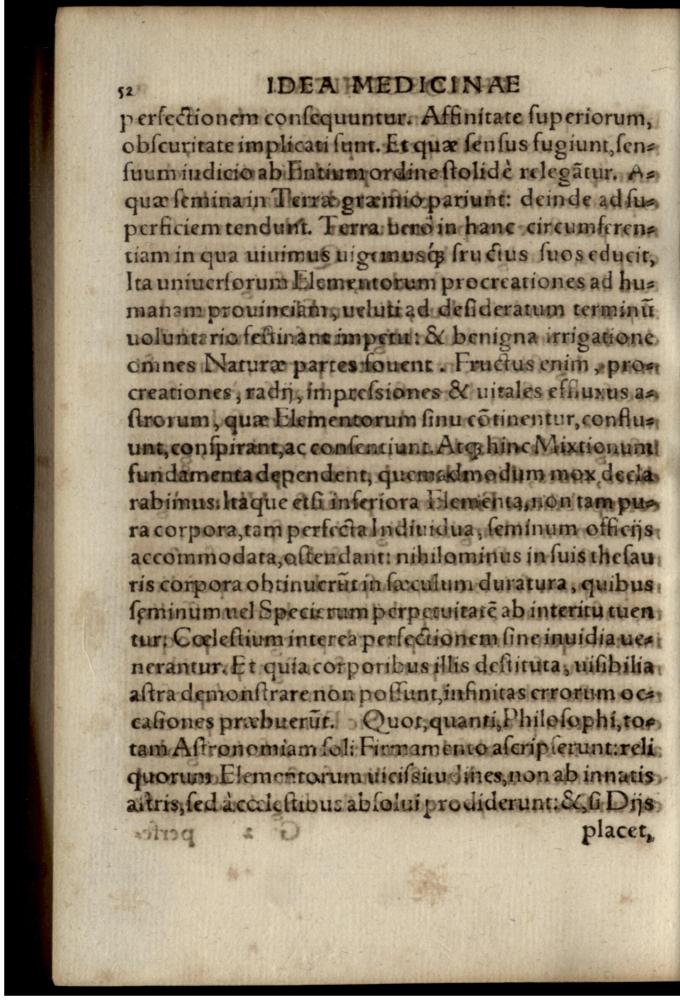 52 IDEA MEDICINAE
perfectionem consequuntur. Affinitate superiorum,
obscuritate implicati sunt. Et quæ sensus fugiunt, sen-
suum iudicio ab Entium ordine stolidè relegãtur. A-
quæ semina in Terræ græmio pariunt: deinde ad su-
perficiem tendunt. Terra verò in hanc circumferen-
tiam in qua uiuimus uigemusq́; fructus suos educit,
Ita uniuersorum Elementorum procreationes ad hu-
manam prouinciam, ueluti ad desideratum terminũ
uoluntario festinant impetu: & benigna irrigatione
omnes Naturæ partes fouent. Fructus enim, pro-
creationes, radij, impressiones & uitales effluxus a-
strorum, quæ Elementorum sinu cõtinentur, conflu-
unt, conspirant, ac consentiunt. Atq; hinc Mixtionum
fundamenta dependent, quemadmodum mox decla
rabimus. Itaque etsi inferiora Elementa, non tam pu-
ra corpora, tam perfecta Indiuidua, seminum officijs
accommodata, ostendant: nihilominus in suis thesau
ris corpora obtinuerũt in sæculum duratura, quibus
seminum uel Specierum perpetuitatẽ ab interitu tuen
tur: Cœlestium interea perfectionem sine inuidia ue-
nerantur. Et quia corporibus illis destituta, uisibilia
astra demonstrare non possunt, infinitas errorum oc-
casiones præbuerũt. Quot, quanti, Philosophi, to-
tam Astronomiam soli Firmamento ascripserunt: reli
quorum Elementorum uicissitudines, non ab innatis
astris, sed à cœlestibus absolui prodiderunt: &, si Dijs
placet,